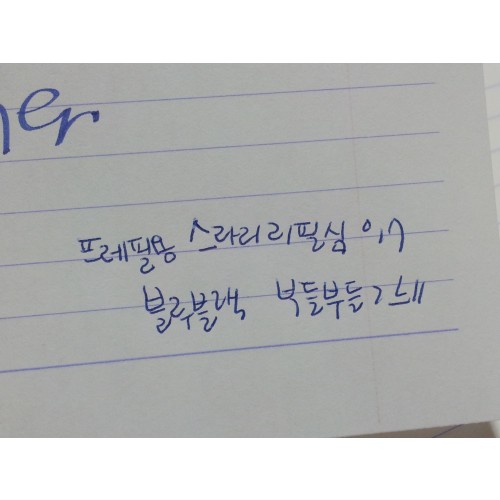 er
프레필용 스라리 리필심 0.7
블루블랙 부들부들 2느네